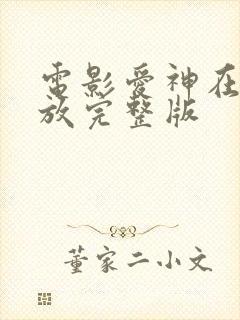 電影愛神在
放完整版
董家二小文